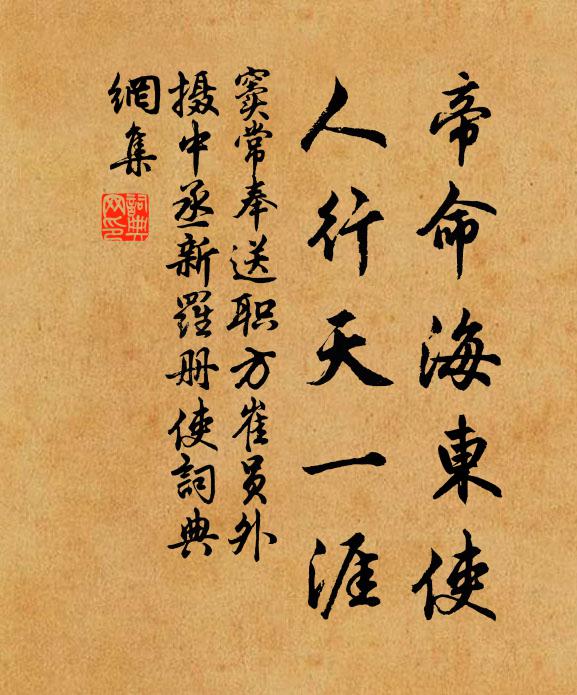 帝命海東使
人行天一涯
窦常奉送职方崔员外
摄中丞新羅册使詞典
網集
詞典
网印